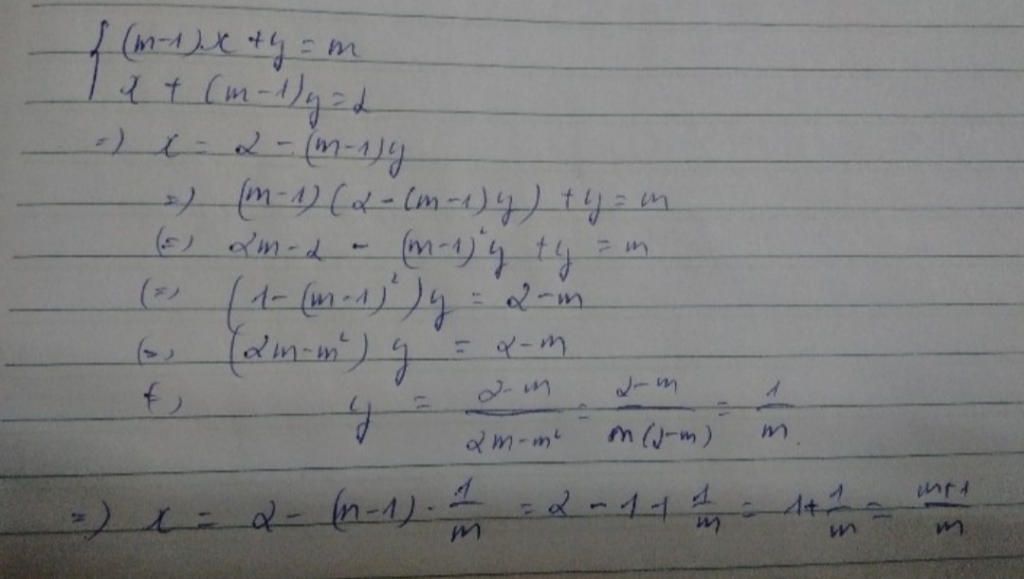 { (m-1).x + y = m
x + (m-1)y = 2
=) x = 2 - (m-1)y
=) (m-1)(2-(m-1)y) + y = m
(=) 2m-2 - (m-1)²y + y = m
(=) (1-(m-1)²)y = 2-m
(=) (2m-m²) y = 2-m
(=) y = \frac{2-m}{2m-m²} = \frac{2-m}{m(2-m)} = \frac{1}{m}.
=) x = 2 - (m-1) . \frac{1}{m} = 2 - 1 + \frac{1}{m} = 1 + \frac{1}{m} = \frac{m+1}{m}